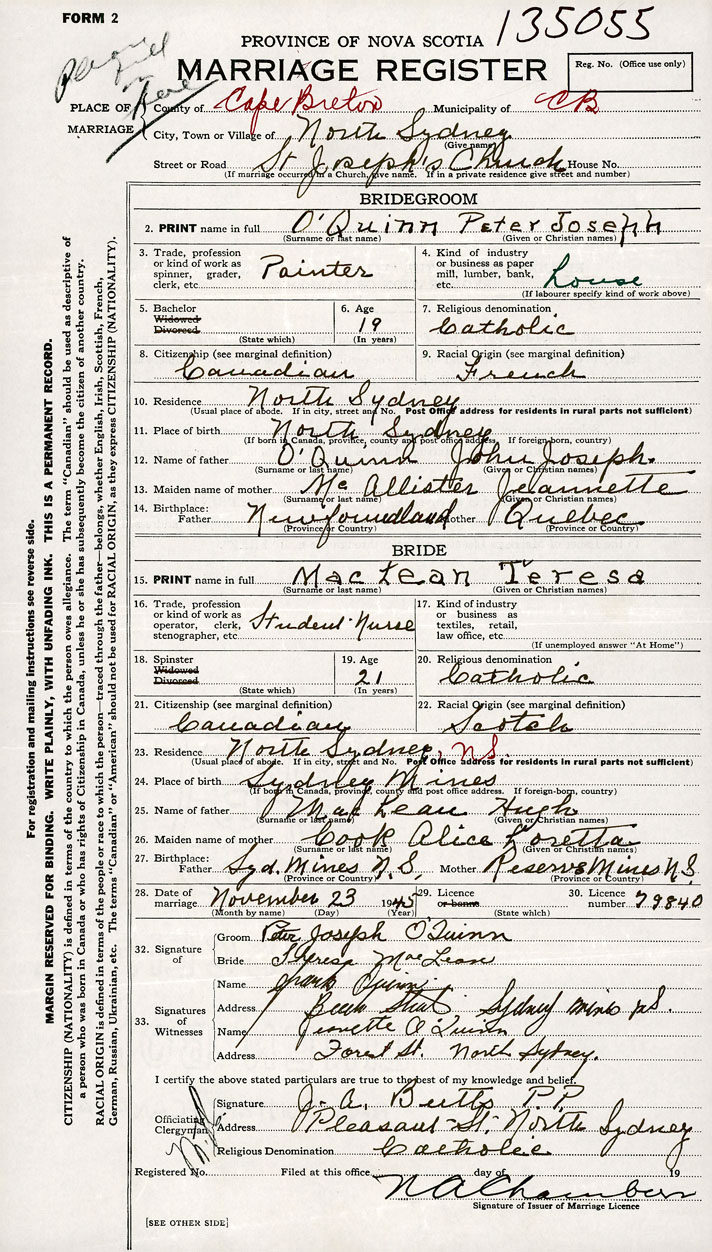 FORM 2
135055
PROVINCE OF NOVA SCOTIA
MARRIAGE REGISTER
Reg. No. (Office use only)
Please fill in here
PLACE OF MARRIAGE
County of Cape Breton Municipality of CB
City, Town or Village of North Sydney
(Give name)
Street or Road St Joseph's Church House No.
(If marriage occurred in a Church, give name. If in a private residence give street and number)
BRIDEGROOM
2. PRINT name in full O'Quinn Peter Joseph
(Surname or last name) (Given or Christian names)
3. Trade, profession or kind of work as spinner, grader, clerk, etc. Painter
4. Kind of industry or business as paper mill, lumber, bank, etc. house
(If labourer specify kind of work above)
5. Bachelor Widowed Divorced (State which)
6. Age 19 (In years)
7. Religious denomination Catholic
8. Citizenship (see marginal definition) Canadian
9. Racial Origin (see marginal definition) French
10. Residence North Sydney
(Usual place of abode. If in city, street and No. Post Office address for residents in rural parts not sufficient)
11. Place of birth North Sydney
(If born in Canada, province, county and post office address. If foreign-born, country)
12. Name of father O'Quinn John Joseph.
(Surname or last name) (Given or Christian names)
13. Maiden name of mother McAllister Jeannette
(Surname or last name) (Given or Christian names)
14. Birthplace: Father Newfoundland Mother Quebec
(Province or Country) (Province or Country)
BRIDE
15. PRINT name in full MacLean Teresa
(Surname or last name) (Given or Christian names)
16. Trade, profession or kind of work as operator, clerk, stenographer, etc. Student Nurse
17. Kind of industry or business as textiles, retail, law office, etc.
(If unemployed answer "At Home")
18. Spinster Widowed Divorced (State which)
19. Age 21 (In years)
20. Religious denomination Catholic
21. Citizenship (see marginal definition) Canadian
22. Racial Origin (see marginal definition) Scotch
23. Residence North Sydney, N.S.
(Usual place of abode. If in city, street and No. Post Office address for residents in rural parts not sufficient)
24. Place of birth Sydney Mines
(If born in Canada, province, county and post office address. If foreign-born, country)
25. Name of father MacLean Hugh
(Surname or last name) (Given or Christian names)
26. Maiden name of mother Cook Alice Loretta
(Surname or last name) (Given or Christian names)
27. Birthplace: Father Syd. Mines N.S. Mother Reserve Mines N.S.
(Province or Country) (Province or Country)
28. Date of marriage November 23 1945
(Month by name) (Day) (Year)
29. Licence or banns (State which)
30. Licence number 79840
32. Signature of
Groom Peter Joseph O'Quinn
Bride Theresa MacLean
33. Signatures of Witnesses
Name Quinn
Address Sydney Mines N.S.
Name Jeanette O'Quinn
Address Forest St. North Sydney.
I certify the above stated particulars are true to the best of my knowledge and belief.
Officiating Clergyman
Signature J. A. Butts P.P.
Address Pleasant St. North Sydney
Religious Denomination Catholic
Registered No. Filed at this office day of 19
N A Chambers
Signature of Issuer of Marriage Licence
[SEE OTHER SIDE]
For registration and mailing instructions see reverse side.
MARGIN RESERVED FOR BINDING. WRITE PLAINLY, WITH UNFADING INK. THIS IS A PERMANENT RECORD.
CITIZENSHIP (NATIONALITY) is defined in terms of the country to which the person owes allegiance. The term "Canadian" should be used as descriptive of
a person who was born in Canada or who has rights of Citizenship in Canada, unless he or she has subsequently become the citizen of another country.
RACIAL ORIGIN is defined in terms of the people or race to which the person—traced through the father—belongs, whether English, Irish, Scottish, French,
German, Russian, Ukrainian, etc. The terms "Canadian" or "American" should not be used for RACIAL ORIGIN, as they express CITIZENSHIP (NATIONALITY).